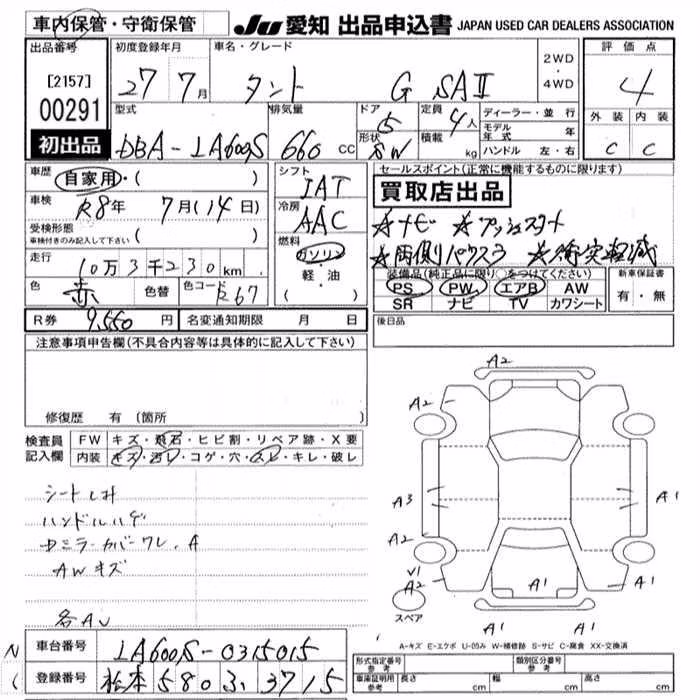 車内保管・守衛保管
JU 愛知 出品申込書 JAPAN USED CAR DEALERS ASSOCIATION
出品番号 初度登録年月 車名・グレード 評価点
[2157] 27 7月 タント G SAⅡ 2WD・4WD 4
00291 型式 排気量 ドア 定員 ディーラー・並行 外装 内装
初出品 DBA-LA600S 660cc 5 4人 モデル年式 年 C C
形状 SW 積載 kg ハンドル 左・右
車歴 自家用・( ) シフト IAT セールスポイント(正常に機能するものに限ります)
買取店出品
車検 R8年 7月(14日) 冷房 AAC ☆ナビ ☆プッシュスタート
受検形態 車検付きのみ記入して下さい ( ) 燃料 ☆両側パワスラ ☆衝突軽減
走行 10万3千230km ガソリン・軽・油 ( ) 装備品(純正品に限り○をつけてください) 新車保証書
色 赤 色替 色コード R67 PS PW エアB AW 有・無
SR ナビ TV カワシート
R券 9,550円 名変通知期限 月 日 後日品
注意事項申告欄(不具合内容等は具体的に記入して下さい)
修復歴 有 (箇所 )
検査員記入欄 FW キズ・飛石・ヒビ割・リペア跡・X要
内装 キズ・汚レ・コゲ・穴・スレ・キレ・破レ
A2
A2
シートしみ
ハンドルハゲ
A3 A1
ドミラーカバーワレ、A A2
AWキズ V1 A2 A1 A1
スペア
各AU A1 A1
A-キズ E-エクボ U-凹み W-補修跡 S-サビ C-腐食 XX-交換済
車台番号 LA600S-0315015
登録番号 松本 580 ふ 3715
形式指定番号 参考 類別区分番号 参考
車庫証明用 参考 長さ cm 幅 cm 高さ cm